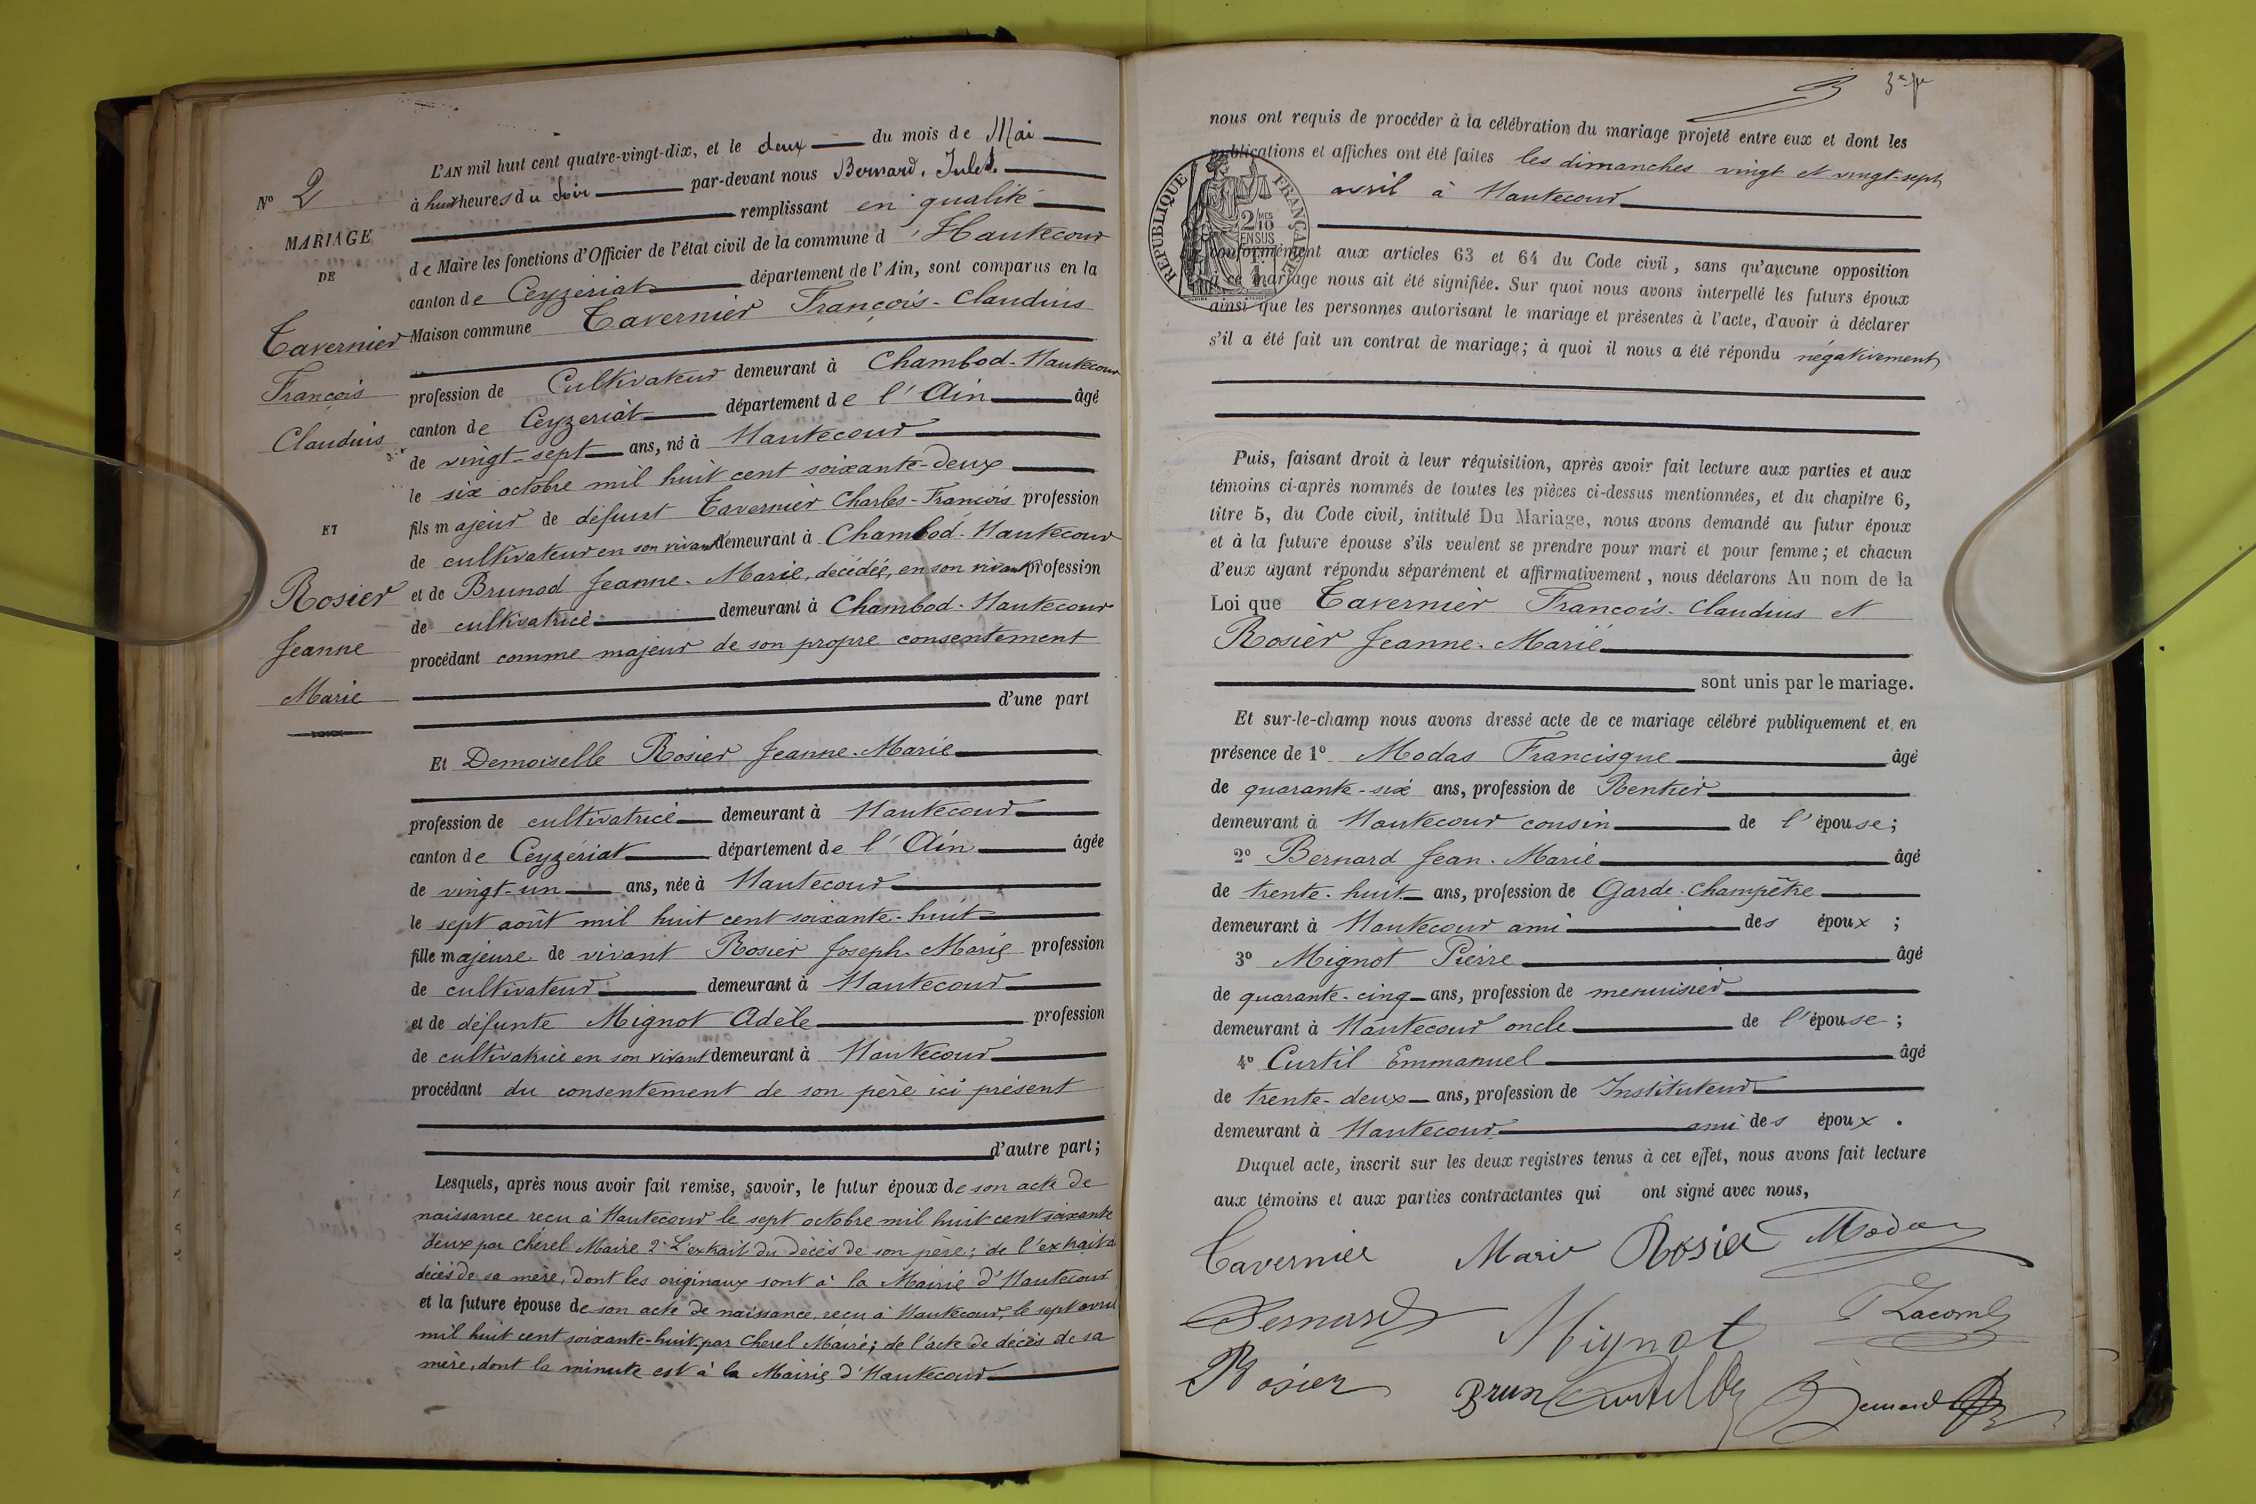 L'AN mil huit cent quatre-vingt-dix, et le deux du mois de Mai
à huit heures du Soir par-devant nous Bernard, Jules.
remplissant en qualité
de Maire les fonctions d'Officier de l'état civil de la commune d'Hautecour
canton de Ceyzériat département de l'Ain, sont comparus en la
Maison commune Tavernier François-Claudius
profession de Cultivateur demeurant à Chambod-Hautecour
canton de Ceyzériat département de l'Ain âgé
de vingt-sept ans, né à Hautecour
le six octobre mil huit cent soixante-deux
fils majeur de défunt Tavernier Charles-François profession
de cultivateur en son vivant demeurant à Chambod-Hautecour
et de Brunod Jeanne-Marie, décédée, en son vivant profession
de cultivatrice demeurant à Chambod-Hautecour
procédant comme majeur de son propre consentement
d'une part
Et Demoiselle Rosier Jeanne-Marie
profession de cultivatrice demeurant à Hautecour
canton de Ceyzériat département de l'Ain âgée
de vingt-un ans, née à Hautecour
le sept août mil huit cent soixante-huit
fille majeure de vivant Rosier Joseph-Marie profession
de cultivateur demeurant à Hautecour
et de défunte Mignot Adèle profession
de cultivatrice en son vivant demeurant à Hautecour
procédant du consentement de son père ici présent
d'autre part;
Lesquels, après nous avoir fait remise, savoir, le futur époux de son acte de
naissance reçu à Hautecour le sept octobre mil huit cent soixante
deux par Chérel Maire 2° L'extrait du décès de son père; de l'extrait
décès de sa mère, dont les originaux sont à la Mairie d'Hautecour
et la future épouse de son acte de naissance, reçu à Hautecour, le sept
mil huit cent soixante-huit par Cherel Maire; de l'acte de décès de sa
mère, dont la minute est à la Mairie d'Hautecour
N° 2
MARIAGE
DE
Tavernier
François
Claudius
ET
Rosier
Jeanne
Marie
3e
nous ont requis de procéder à la célébration du mariage projeté entre eux et dont les
publications et affiches ont été faites les dimanches vingt et vingt-sept
avril à Hautecour
RÉPUBLIQUE FRANÇAISE
2/10
MES
EN SUS
conformément aux articles 63 et 64 du Code civil, sans qu'aucune opposition
à ce mariage nous ait été signifiée. Sur quoi nous avons interpellé les futurs époux
ainsi que les personnes autorisant le mariage et présentes à l'acte, d'avoir à déclarer
s'il a été fait un contrat de mariage; à quoi il nous a été répondu négativement
Puis, faisant droit à leur réquisition, après avoir fait lecture aux parties et aux
témoins ci-après nommés de toutes les pièces ci-dessus mentionnées, et du chapitre 6,
titre 5, du Code civil, intitulé Du Mariage, nous avons demandé au futur époux
et à la future épouse s'ils veulent se prendre pour mari et pour femme; et chacun
d'eux ayant répondu séparément et affirmativement, nous déclarons Au nom de la
Loi que Tavernier François-Claudius et
Rosier Jeanne-Marie
sont unis par le mariage.
Et sur-le-champ nous avons dressé acte de ce mariage célébré publiquement et en
présence de 1° Modas Francisque âgé
de quarante-six ans, profession de Rentier
demeurant à Hautecour cousin de l'épouse;
2° Bernard Jean-Marie âgé
de trente-huit ans, profession de Garde-Champêtre
demeurant à Hautecour ami des époux;
3° Mignot Pierre âgé
de quarante-cinq ans, profession de menuisier
demeurant à Hautecour oncle de l'épouse;
4° Curtil Emmanuel âgé
de trente-deux ans, profession de Instituteur
demeurant à Hautecour ami des époux.
Duquel acte, inscrit sur les deux registres tenus à cet effet, nous avons fait lecture
aux témoins et aux parties contractantes qui ont signé avec nous,
Tavernier Marie Rosier Modas
Bernard Mignot Lacomb
Rosier Brun Curtil Bernard